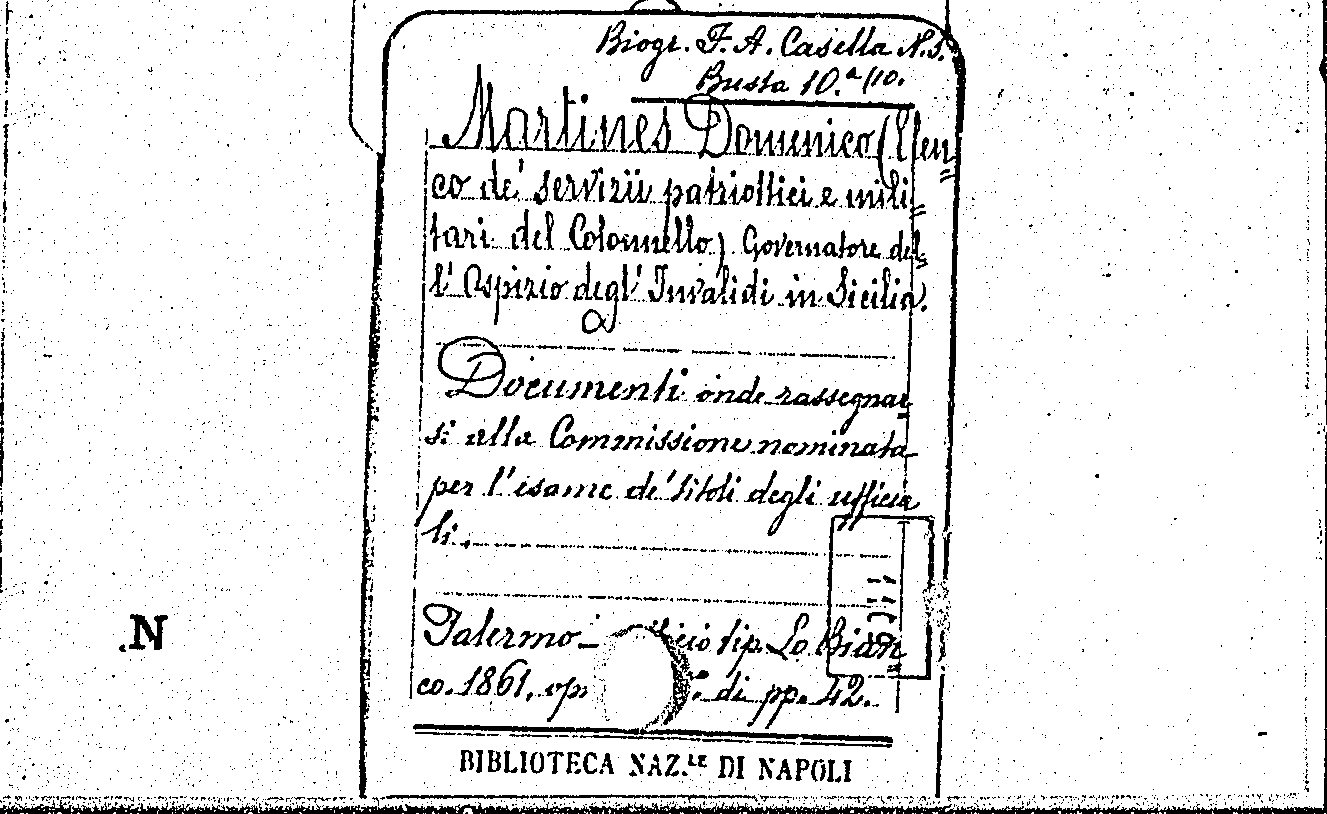 Biogr. F. A. Casella N.S.
Busta 10.ª (10.
Martines Domenico (Elen=
co de' servizii patriottici e mili=
tari del Colonnello) Governatore del=
l'Ospizio degl' Invalidi in Sicilia.
Documenti onde rassegnar=
si alla Commissione nominata
per l'esame de' titoli degli ufficia
li.
Palermo - tip. Lo Bian=
co. 1861, op. di pp. 42.
N
BIBLIOTECA NAZ.LE DI NAPOLI